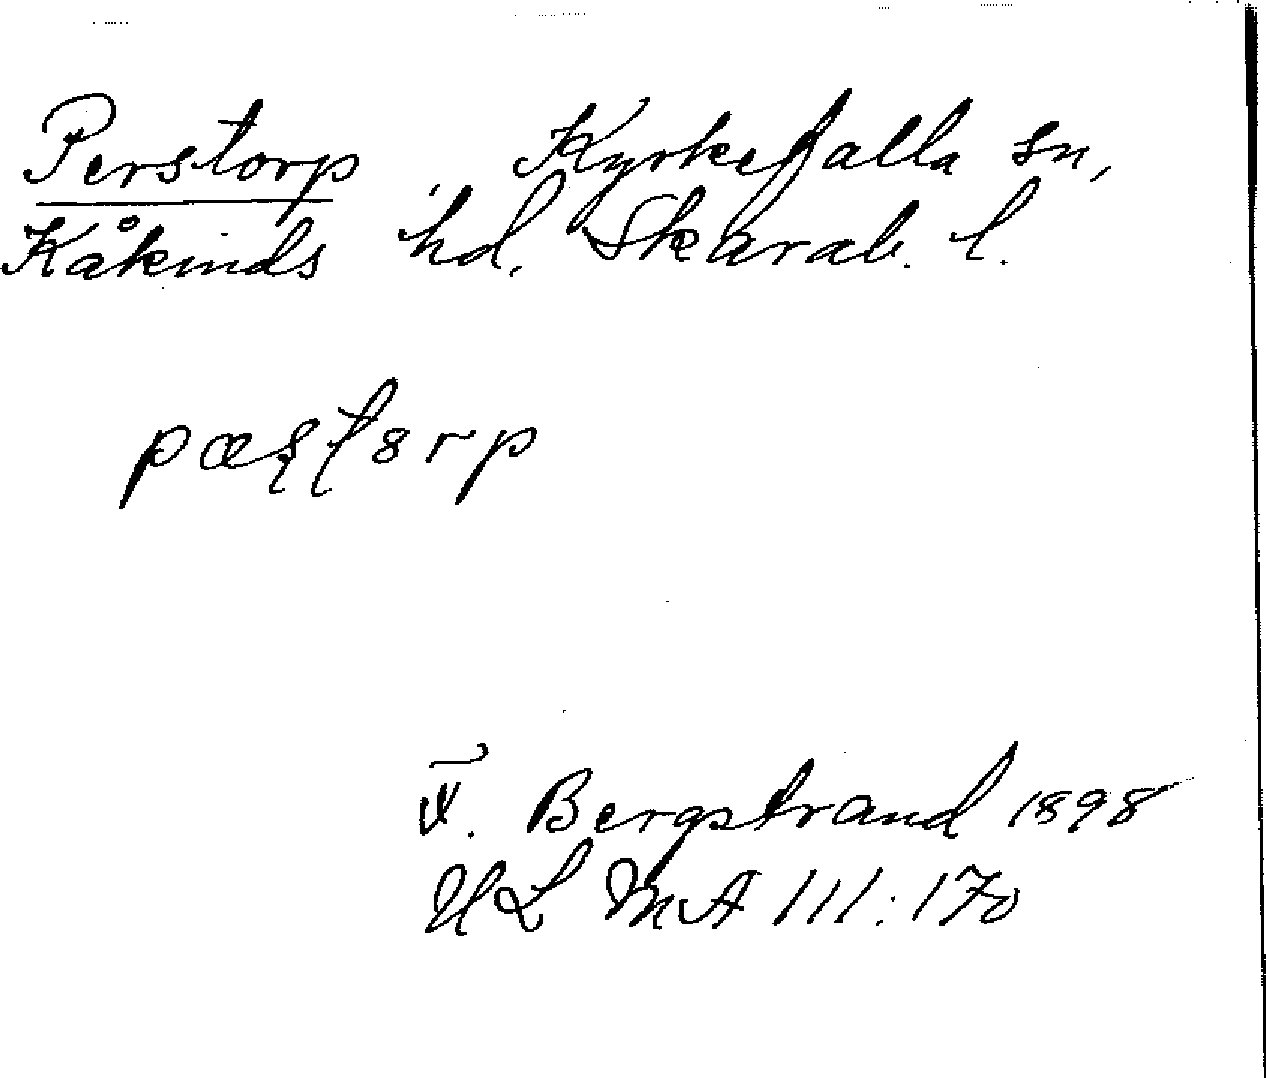 Perstorp Kyrkefalla sn,
Kåkinds hd. Skarab. l.
Bergstrand 1898
ULMA 111:170